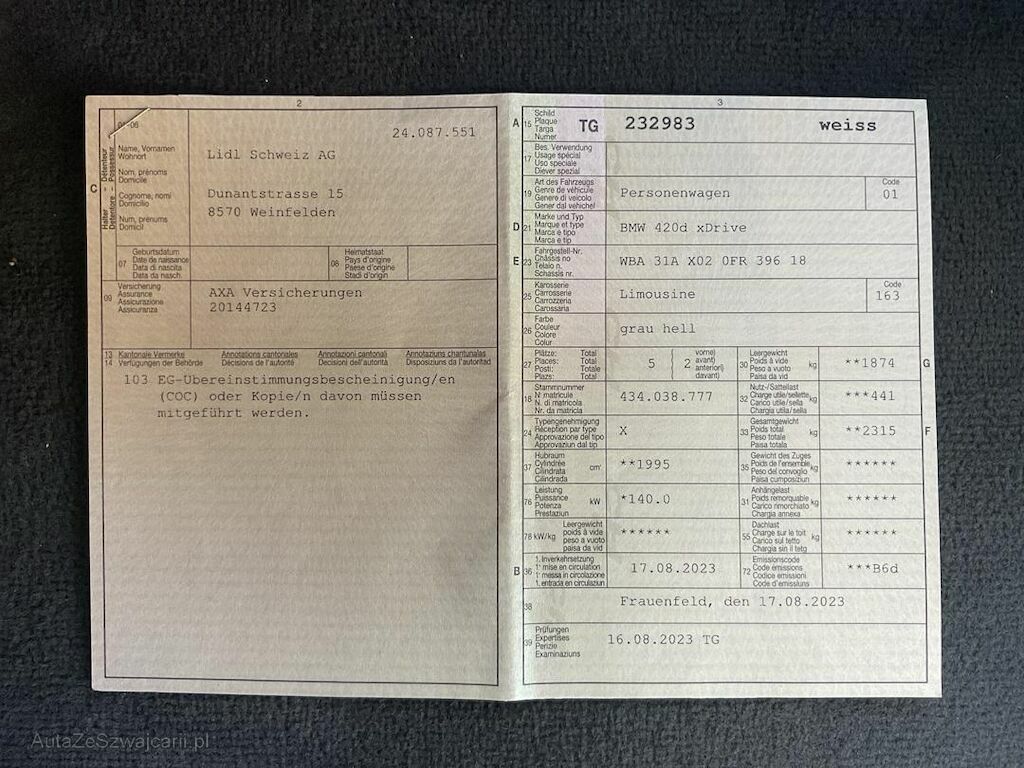 2
01-06
24.087.551
C
Halter - Détenteur
Detentore - Possessur
Name, Vornamen
Wohnort
Nom, prénoms
Domicile
Cognome, nomi
Domicilio
Num, prenums
Domicil
Lidl Schweiz AG
Dunantstrasse 15
8570 Weinfelden
07
Geburtsdatum
Date de naissance
Data di nascita
Data da nasch.
08
Heimatstaat
Pays d'origine
Paese d'origine
Stadi d'origin
09
Versicherung
Assurance
Assicurazione
Assicuranza
AXA Versicherungen
20144723
13 Kantonale Vermerke Annotations cantonales Annotazioni cantonali Annotaziuns chantunalas
14 Verfügungen der Behörde Décisions de l'autorité Decisioni dell'autorità Disposiziuns da l'autoritad
103 EG-Übereinstimmungsbescheinigung/en
(COC) oder Kopie/n davon müssen
mitgeführt werden.
3
A 15
Schild
Plaque
Targa
Numer
TG 232983 weiss
17
Bes. Verwendung
Usage spécial
Uso speciale
Diever spezial
19
Art des Fahrzeugs
Genre de véhicule
Genere di veicolo
Gener dal vehichel
Personenwagen
Code
01
D 21
Marke und Typ
Marque et type
Marca e tipo
Marca e tip
BMW 420d xDrive
E 23
Fahrgestell-Nr.
Châssis no
Telaio n.
Schassis nr.
WBA 31A X02 0FR 396 18
25
Karosserie
Carrosserie
Carrozzeria
Carossaria
Limousine
Code
163
26
Farbe
Couleur
Colore
Colur
grau hell
27
Plätze: Total
Places: Total
Posti: Totale
Plazs: Total
5 2
vorne)
avant)
anteriori)
davant)
30
Leergewicht
Poids à vide
Peso a vuoto
Paisa da vid
kg
**1874
G
18
Stammnummer
N° matricule
N. di matricola
Nr. da matricla
434.038.777
32
Nutz-/Sattellast
Charge utile/sellette
Carico utile/sella
Chargia utila/sella
kg
***441
24
Typengenehmigung
Réception par type
Approvazione del tipo
Approvaziun dal tip
X
33
Gesamtgewicht
Poids total
Peso totale
Paisa totala
kg
**2315
F
37
Hubraum
Cylindrée
Cilindrata
Cilindrada
cm³
**1995
35
Gewicht des Zuges
Poids de l'ensemble
Peso del convoglio
Paisa cumposiziun
kg
******
76
Leistung
Puissance
Potenza
Prestaziun
kW
*140.0
31
Anhängelast
Poids remorquable
Carico rimorchiato
Chargia annexa
kg
******
78 kW/kg
Leergewicht
poids à vide
peso a vuoto
paisa da vid
******
55
Dachlast
Charge sur le toit
Carico sul tetto
Chargia sin il tetg
kg
******
B 36
1. Inverkehrsetzung
1re mise en circulation
1a messa in circolazione
1. entrada en circulaziun
17.08.2023
72
Emissionscode
Code émissions
Codice emissioni
Code d'emissiuns
***B6d
38
Frauenfeld, den 17.08.2023
39
Prüfungen
Expertises
Perizie
Examinaziuns
16.08.2023 TG
AutaZeSzwajcarii.pl